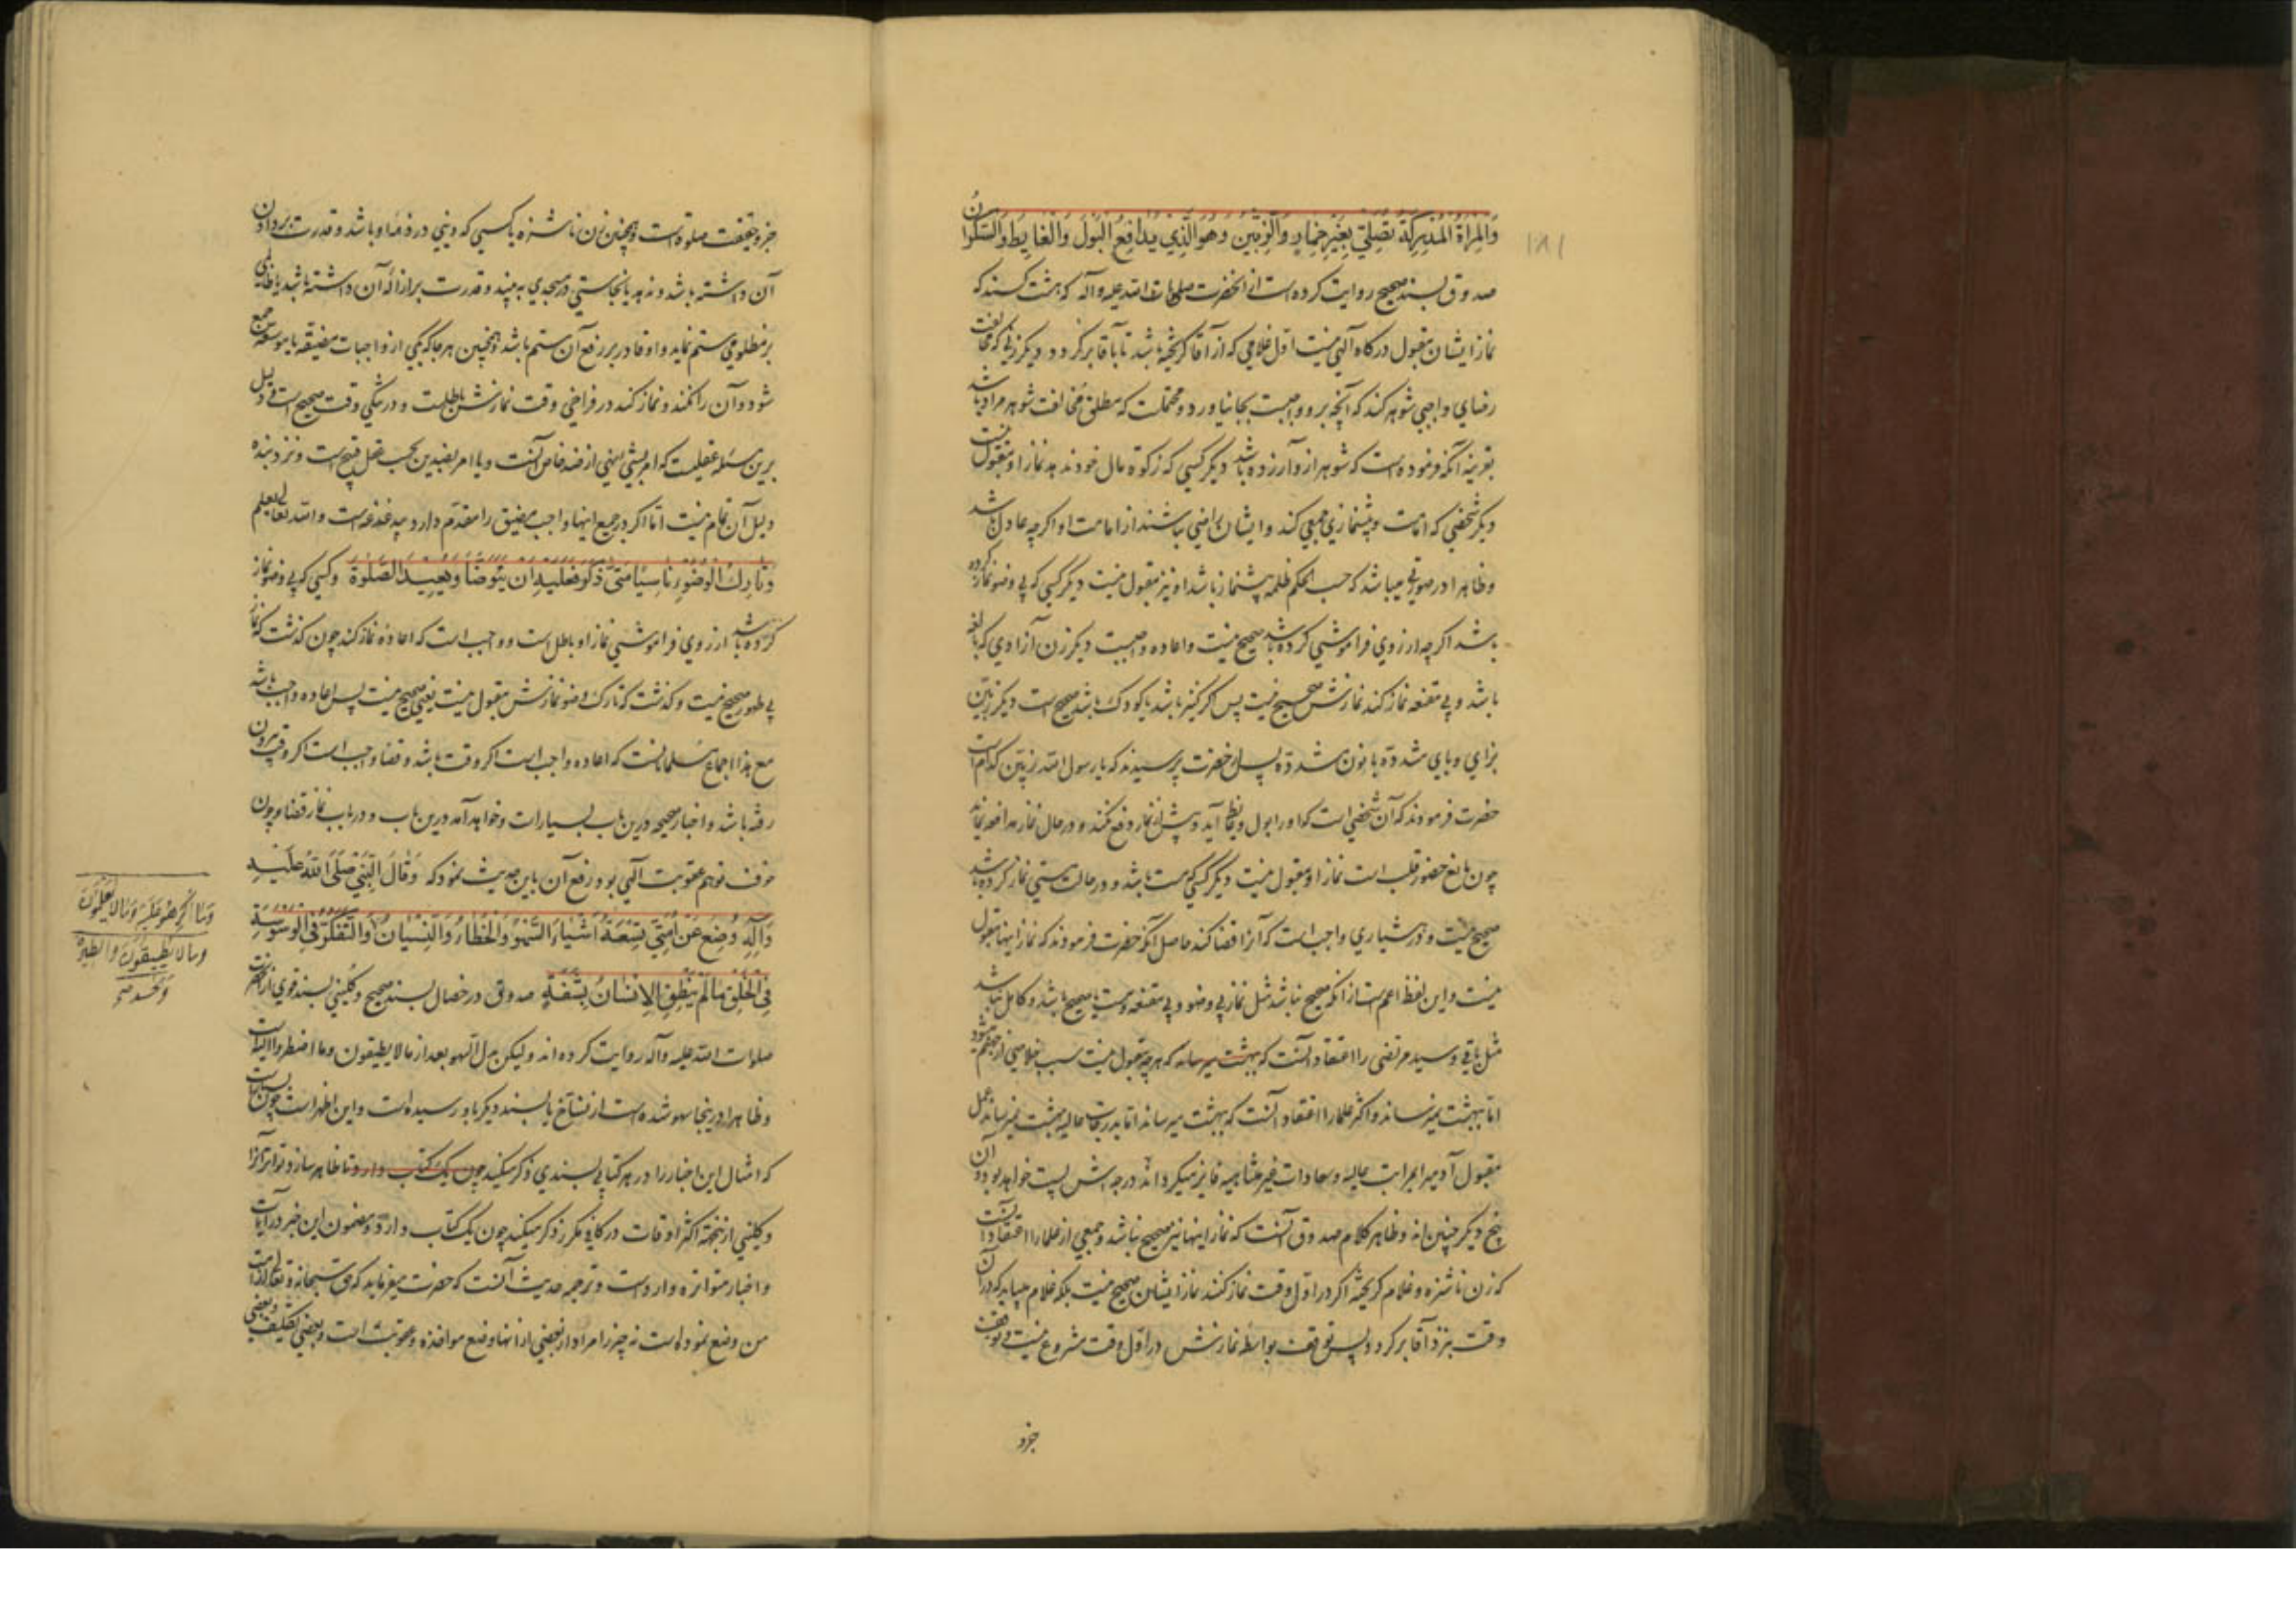 ۱۸۱
وَالْمَرْأَةُ الْمُدْرِكَةُ تُصَلِّي بِغَيْرِ خِمَارٍ وَالزِّبِّينُ وَهُوَ الَّذِي يُدَافِعُ الْبَوْلَ وَالْغَايِطَ وَالسَّكْرَانُ
صدوق بسند صحیح روایت کرده است از آنحضرت صلوات الله علیه وآله که هشت کسند که
نماز ایشان مقبول درگاه آلهی نیست اول غلامی که از آقا گریخته باشد تا باقا برگردد و دیگر زنی که مخالفت
رضای واجبی شوهر کند که آنچه برو واجبست بجا نیاورد و محتملست که مطلق مخالفت شوهر مراد باشد
بقرینه آنکه فرموده است که شوهر ازو آزرده باشد دیگر کسی که زکوة مال خود ندهد نماز او مقبول نیست
دیگر شخصی که امامت و پیشنمازی جمعی کند و ایشان راضی نباشند از امامت او اگرچه عادل باشد
وظاهرا در صورتی میباشد که حسب الحکم ظلمه پیشنماز باشد او نیز مقبول نیست دیگر کسی که بی وضو نماز کرده
باشد اگرچه از روی فراموشی کرده باشد صحیح نیست واعاده واجبست دیگر زن آزادی که بالغه
باشد و بی مقنعه نماز کند نمازش صحیح نیست پس اگر کنیز باشد یا کودک باشد صحیح است دیگر زبین
بزای و بای مشدده با نون مشدده پس از حضرت پرسیدند که یا رسول الله زبین کدام است
حضرت فرمودند که آن شخصی است که او را بول و غایط آید و پیش از نماز دفع نکند و در حال نماز مدافعه نماید
چون مانع حضور قلب است نماز او مقبول نیست دیگر کسی که مست باشد و در حالت مستی نماز کرده باشد
صحیح نیست و در هشیاری واجب است که آنرا قضا کند حاصل آنکه حضرت فرمودند که نماز اینها مقبول
نیست و این لفظ اعم است از آنکه صحیح نباشد مثل نماز بی وضو و بی مقنعه و مست یا صحیح باشد و کامل نباشد
مثل باقی و سید مرتضی را اعتقاد آنست که بهشت میرساند که هرچه مقبول نیست سبب خلاصی از جهنم میشود
اما ببهشت نمیرساند و اکثر علما را اعتقاد آنست که ببهشت میرساند اما بدرجات عالیه بهشت نمیرساند عمل
مقبول آدمی را بمراتب عالیه و سعادات غیر متناهیه فایز میگرداند درجه اش پست خواهد بود و آن
پنج دیگر چنین اند و ظاهر کلام صدوق آنست که نماز اینها نیز صحیح نباشد و جمعی از علما را اعتقاد آنست
که زن ناشزه و غلام گریخته اگر در اول وقت نماز کنند نماز ایشان صحیح نیست بلکه غلام میباید که در آن
وقت بنزد آقا برگردد پس توقف بواسطه نمازش در اول وقت مشروع نیست و توقف
جزو
جزو حقیقت صلوة است و همچنین زن ناشزه یا کسی که دینی در ذمه او باشد و قدرت بر دادن
آن داشته باشد و ندهد یا نجاستی در مسجدی به بیند و قدرت بر ازاله آن داشته باشد یا ظالمی
بر مظلومی ستم نماید و او قادر بر رفع آن ستم باشد و همچنین هر جا که یکی از واجبات مضیقه با موسعه جمع
شود و آن را نکند و نماز کند در فراخی وقت نمازش باطلست و در تنگی وقت صحیح است و دلیل
برین مسئله عقلیست که امر بشئ نهی از ضد خاص آنست و یا امر بضدین بحسب عقل قبیح است و نزد بنده
دلیل آن تمام نیست اما اگر در جمیع اینها واجب مضیق را مقدم دارد بیدغدغه است والله تعالی یعلم
وَتَارِكُ الْوُضُوءِ نَاسِيًا مَتَى ذَكَرَ فَعَلَيْهِ أَنْ يَتَوَضَّأَ وَيُعِيدَ الصَّلٰوةَ وکسی که بی وضو نماز
کرده باشد از روی فراموشی نماز او باطل است و واجب است که اعاده نماز کند چون گذشت که نماز
بی طهور صحیح نیست و گذشت که تارک وضو نمازش مقبول نیست یعنی صحیح نیست پس اعاده واجب باشد
مع هذا اجماع مسلمانانست که اعاده واجب است اگر وقت باشد و قضا واجب است اگر وقت بیرون
رفته باشد و اخبار صحیحه درین باب بسیار است و خواهد آمد درین باب و در باب نماز قضا و چون
خوف توهم عقوبت آلهی بود رفع آن باین حدیث نمود که وَقَالَ النَّبِيُّ صَلَّى اللهُ عَلَيْهِ
وَآلِهِ وُضِعَ عَنْ أُمَّتِي تِسْعَةُ أَشْيَاءَ السَّهْوُ وَالْخَطَاءُ وَالنِّسْيَانُ وَالتَّفَكُّرُ فِي الْوَسْوَسَةِ
فِي الْخَلْقِ مَا لَمْ يَنْطِقِ الْإِنْسَانُ بِشَفَةٍ صدوق در خصال بسند صحیح و کلینی بسند قوی از آنحضرت
صلوات الله علیه وآله روایت کرده اند ولیکن بدل السهو بعد از مالا یطیقون وما اضطروا الیه است
وظاهرا در اینجا سهو شده است از نساخ یا بسند دیگر باو رسیده است و این اظهر است چون
که امثال این اخبار را در هر کتابی بسندی ذکر میکند چون یک کتاب دارد تا ظاهر سازد تواتر آنرا
و کلینی از بجهة اکثر اوقات در کافی مکرر ذکر میکند چون یک کتاب دارد و مضمون این خبر در آیات
و اخبار متواتره وارد است و ترجمه حدیث آنست که حضرت میفرماید که حق سبحانه و تعالی از امت
من وضع نموده است نه چیز را مراد از بعضی از آنها وضع مواخذه و عقوبت است و بعضی تکلیف و بعضی
وَمَا أُكْرِهُوا عَلَيْهِ وَمَا لَا يَعْلَمُونَ
وَمَا لَا يُطِيقُونَ وَالطِّيَرَةُ
وَالْحَسَدُ صح